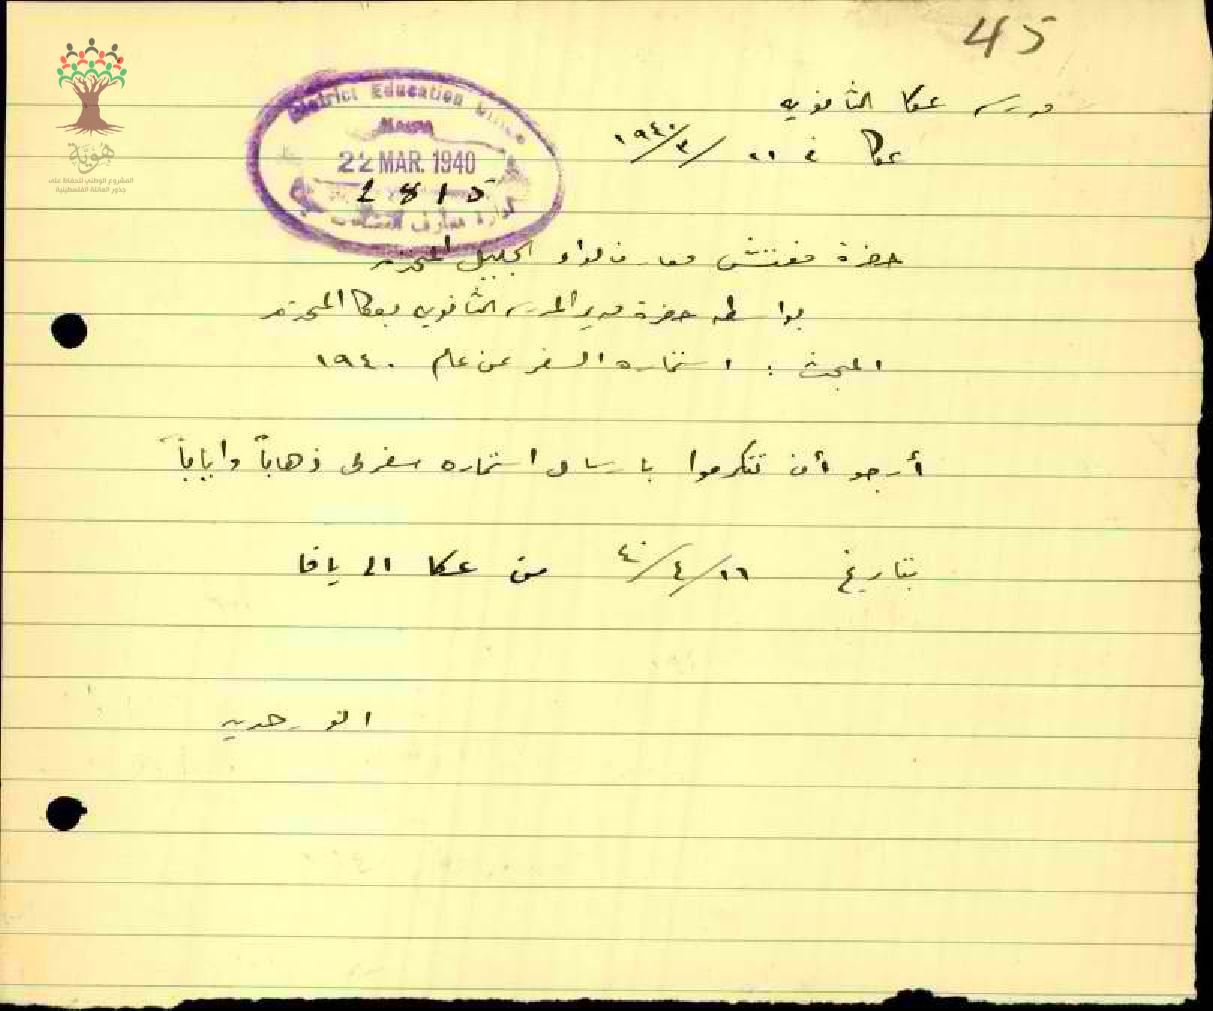 45
مدرسة عكا الثانوية
عكا في ٢١ / ٣ / ١٩٤٠
District Education Office
HAIFA
22 MAR. 1940
2815
ادارة معارف
هوية
المشروع الوطني للحفاظ على
جذور العائلة الفلسطينية
حضرة مفتش معارف لواء الجليل المحترم
بواسطة حضرة مدير المدرسة الثانوية بعكا المحترم
المبحث : استمارة السفر عن عام ١٩٤٠
أرجو أن تتكرموا بارسال استمارة سفر لي ذهاباً واياباً
بتاريخ ١٦ / ٤ / ٤٠ من عكا الى يافا